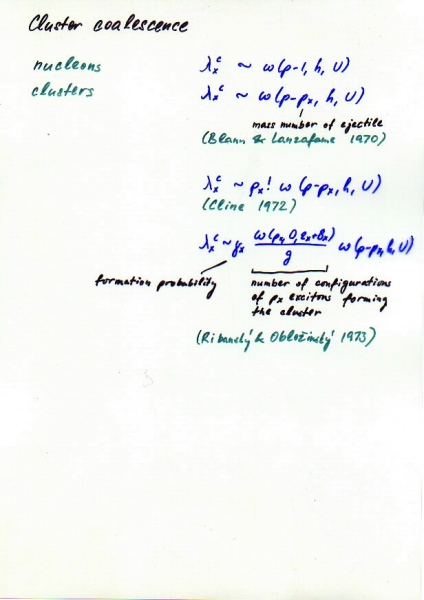 Cluster coalescence
nucleons λₓᶜ ~ ω(p-1, h, U)
clusters λₓᶜ ~ ω(p-pₓ, h, U)
mass number of ejectile
(Blann & Lanzafame 1970)
λₓᶜ ~ pₓ! ω(p-pₓ, h, U)
(Cline 1972)
λₓᶜ ~ γₓ ω(pₓ, 0, εₓ+Bₓ)/g ω(p-pₓ, h, U)
formation probability
number of configurations
of pₓ excitons forming
the cluster
(Ribanský & Obložinský 1973)